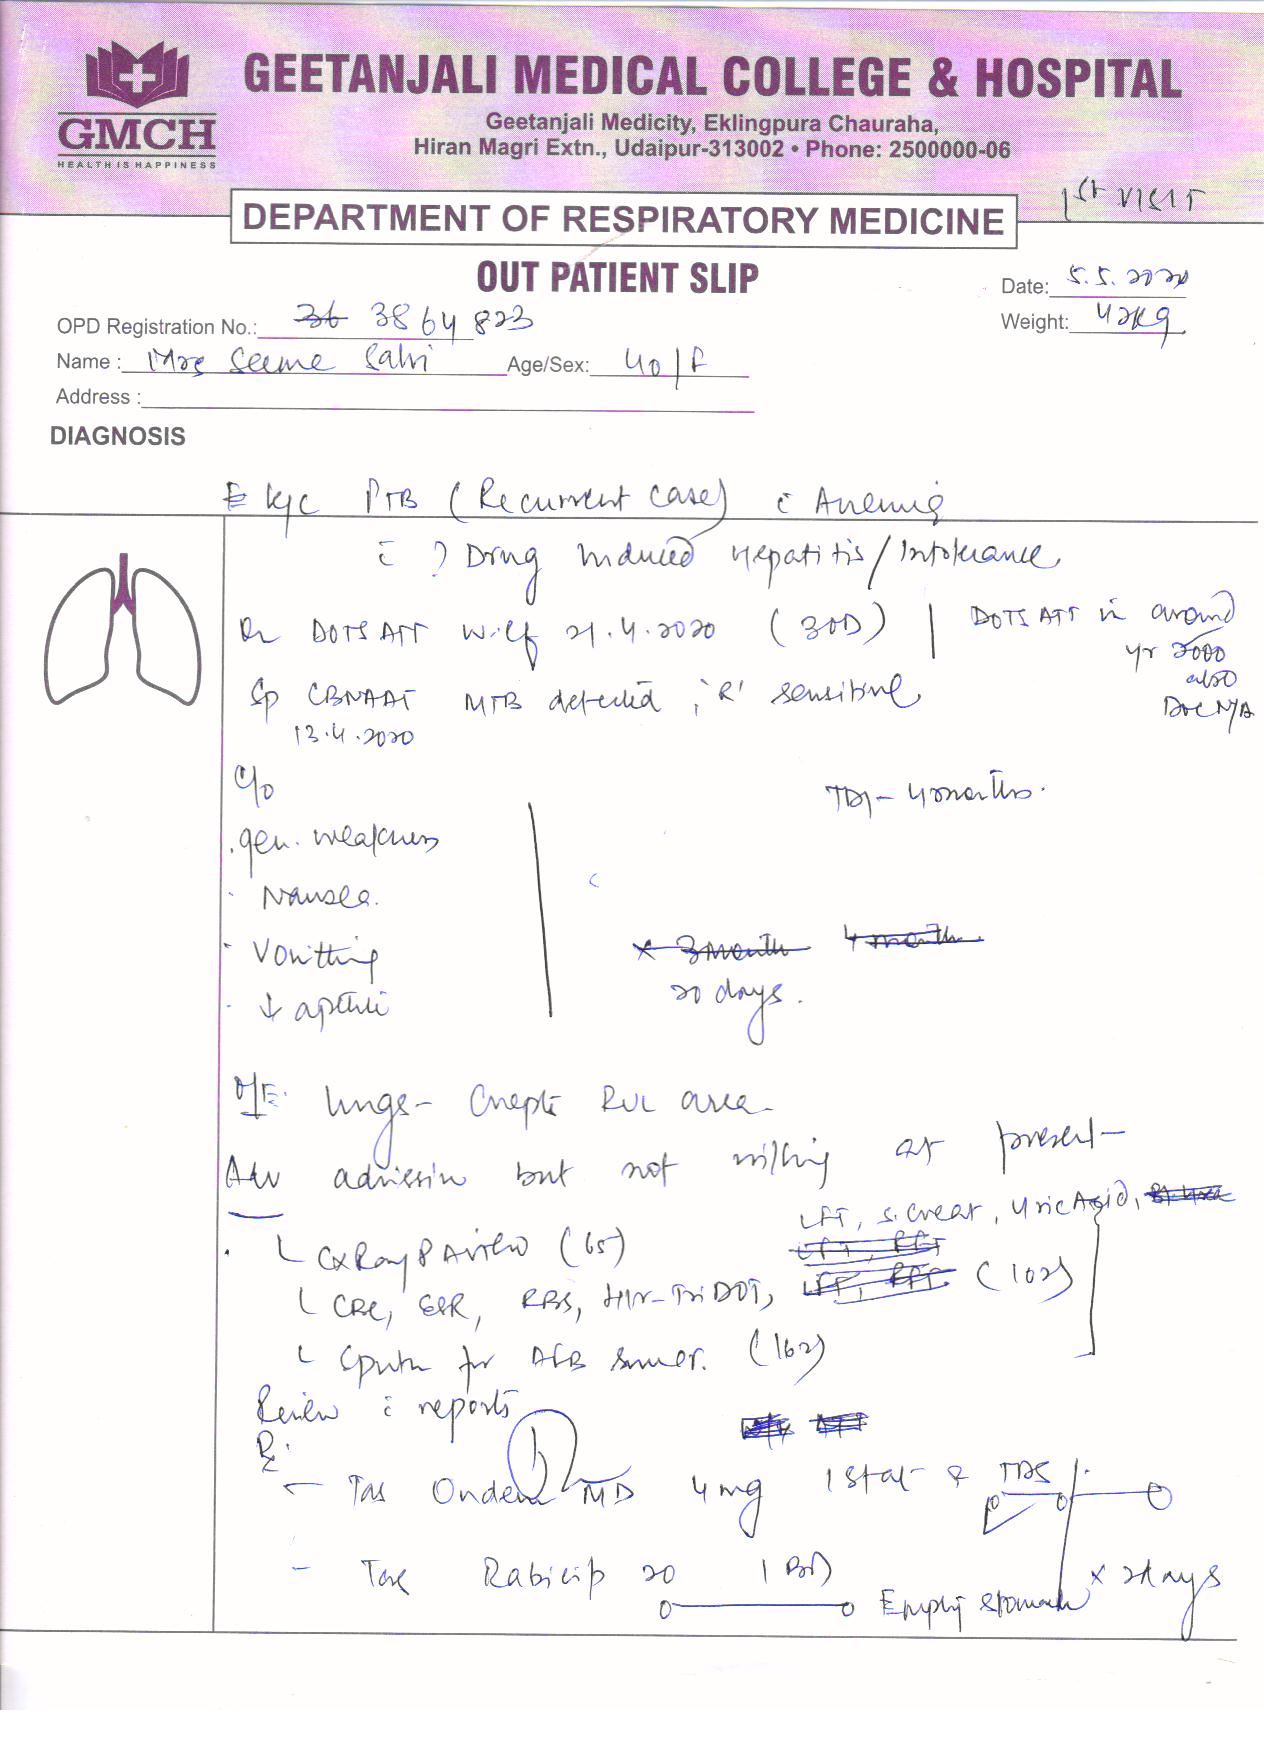 GMCH
HEALTH IS HAPPINESS
GEETANJALI MEDICAL COLLEGE & HOSPITAL
Geetanjali Medicity, Eklingpura Chauraha,
Hiran Magri Extn., Udaipur-313002 • Phone: 2500000-06
1st VISIT
DEPARTMENT OF RESPIRATORY MEDICINE
OUT PATIENT SLIP
Date: 5.5.2020
OPD Registration No.: 36 3864823
Weight: 42kg
Name : Mrs Seema Salvi Age/Sex: 40/F
Address :
DIAGNOSIS
K/C PTB (Recurrent Case) c̄ Anemia
c̄ ? Drug Induced Hepatitis/Intolerance
On DOTS ATT w.e.f 21.4.2020 (3OD) | DOTS ATT in around
yr 2000
also
Doc N/A
Sp CBNAAT MTB detected, 'R' sensitive
13.4.2020
C/O
TDI - 4 months.
. gen. weakness
. Nausea.
- Vomitting
x 3 month 4 month
20 days.
. ↓ aptite
O/E: lungs - Crepts RUL area
Adv admission but not willing at present
LFT, S. Creat, Uric Acid,
CxRay PA view (65)
LFT, RFT
CBC, ESR, RBS, HIV-TriDOT, LFT, RFT (102)
Sputm for AFB smear. (162)
Review c̄ reports
Rx
- Tab Ondem MD 4mg 1 Stat & TDS
- Tab Rabicip 20 1 BD Empty stomach x 2days